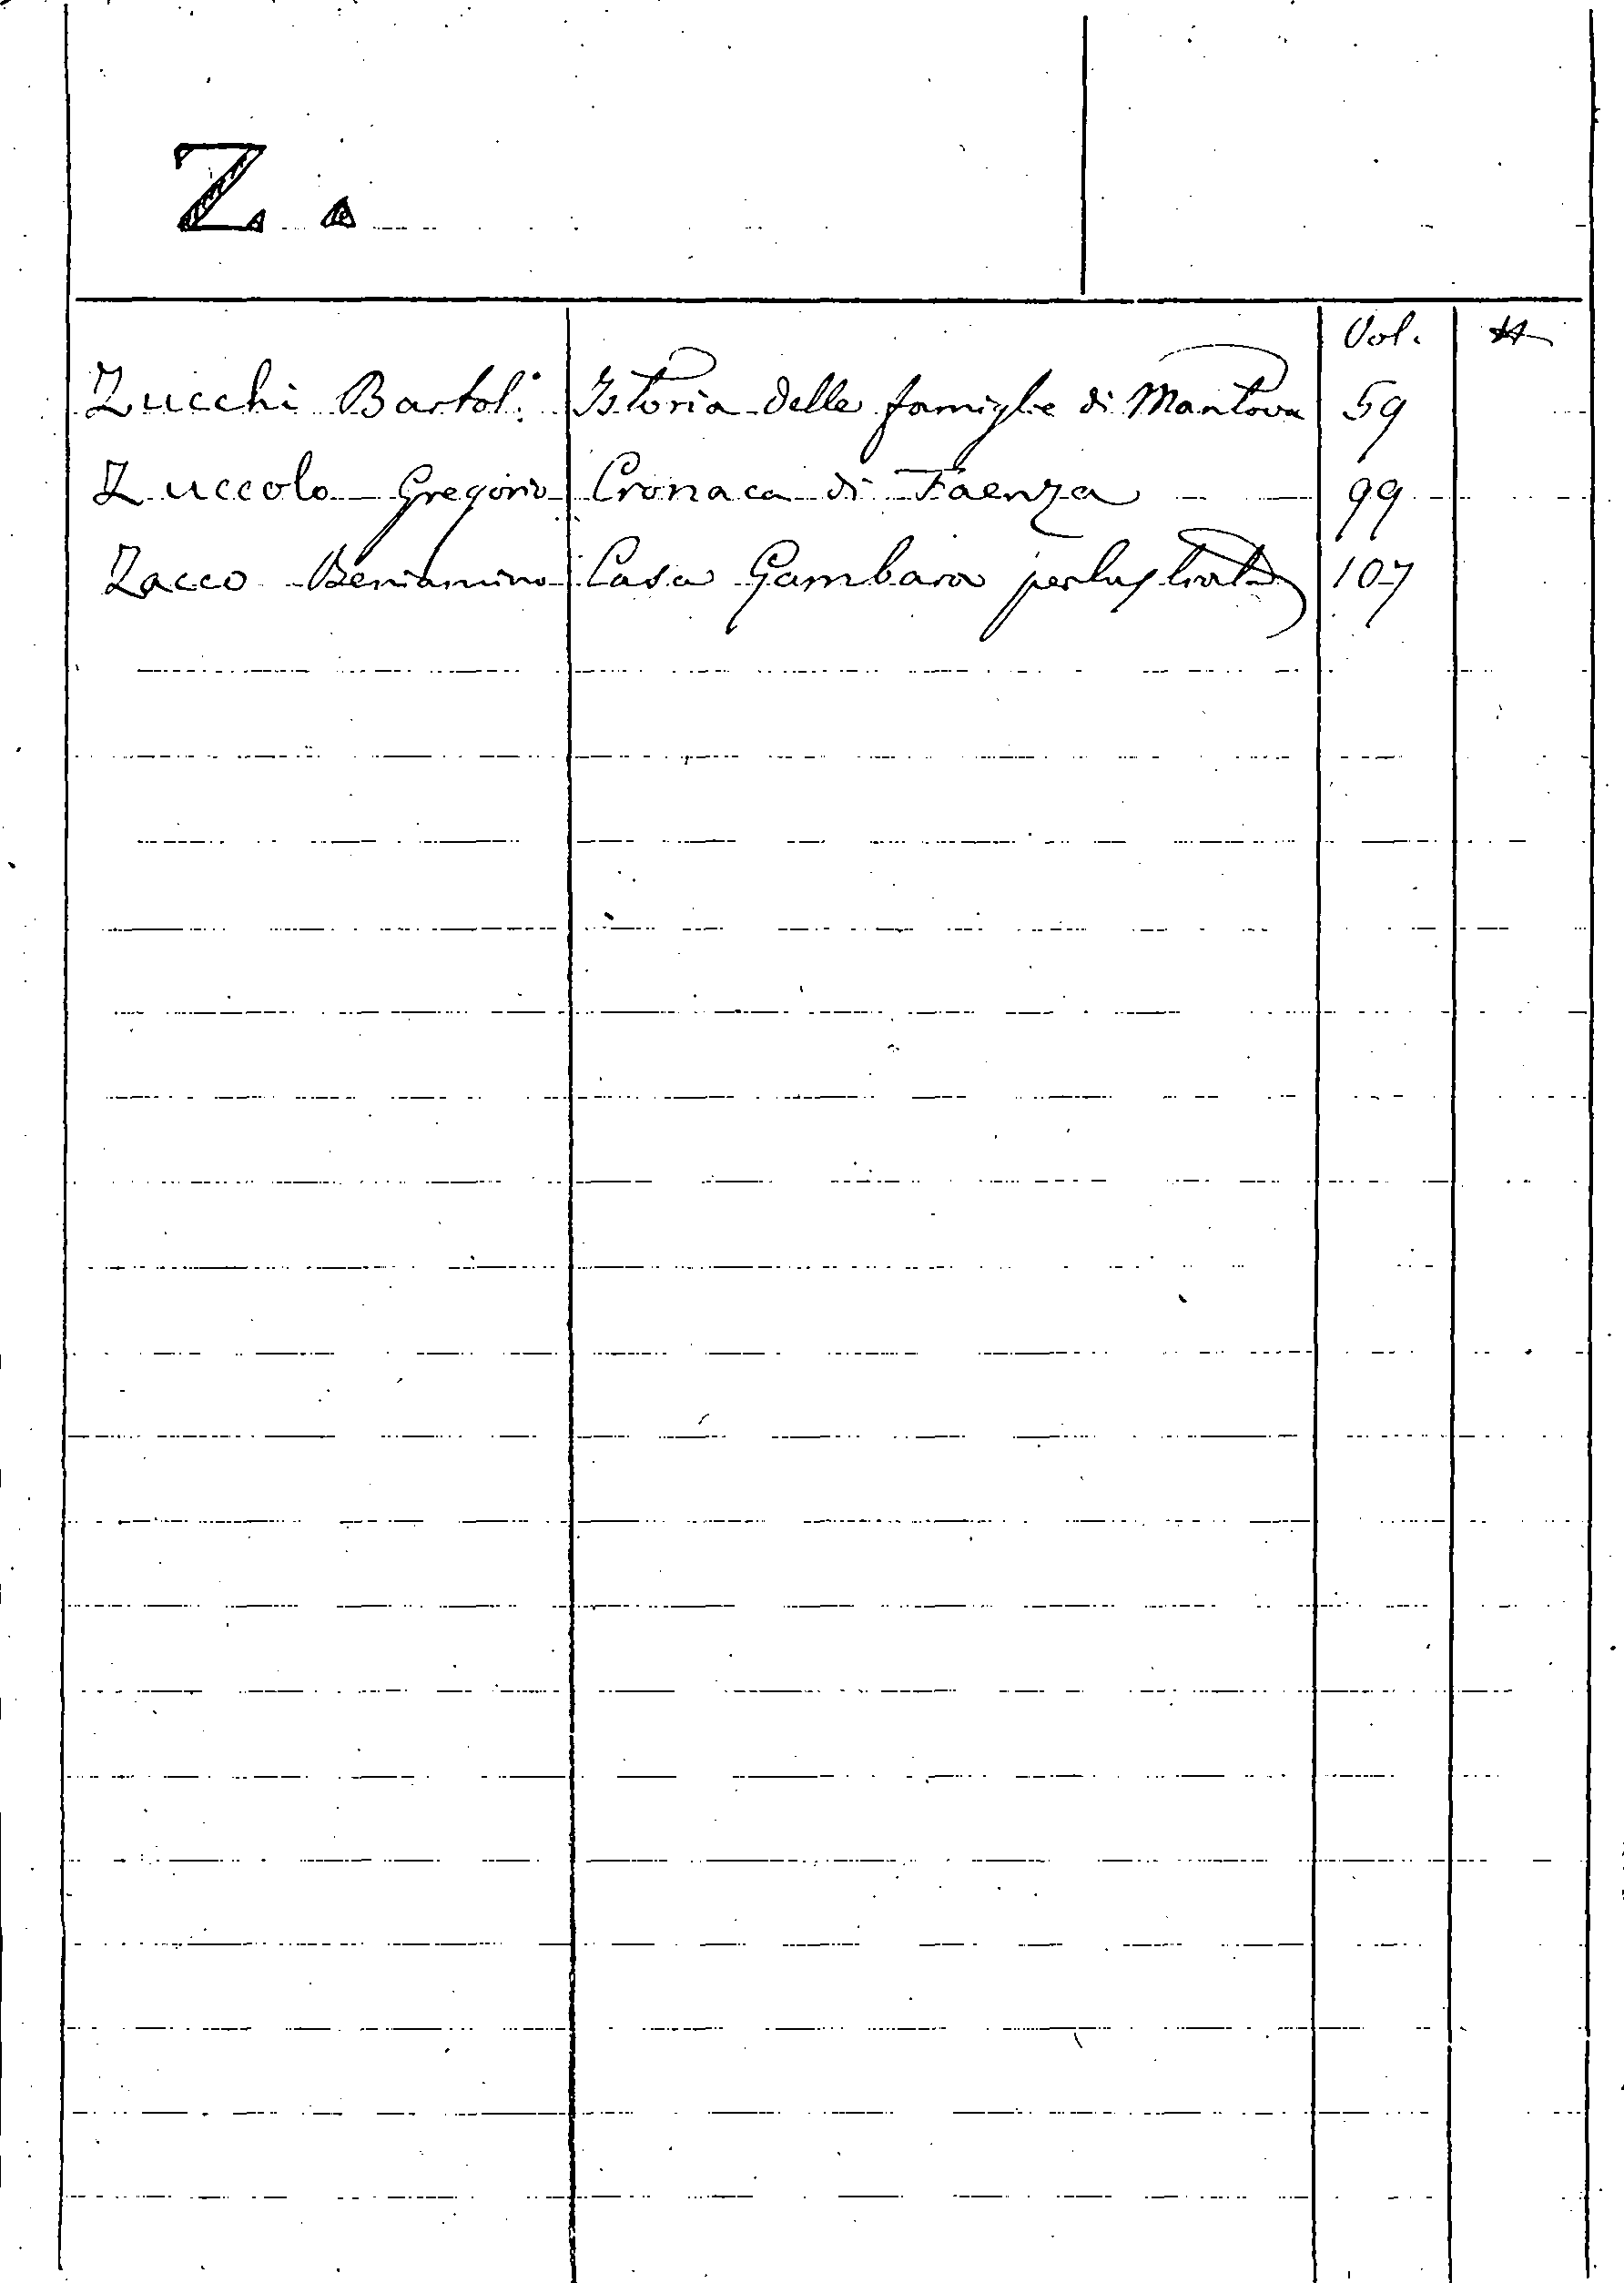 Z.
Vol.
Zucchi Bartol: Istoria delle famiglie di Mantova 59
Zuccolo Gregorio Cronaca di Faenza 99
Zacco Beniamino Casa Gambara 107